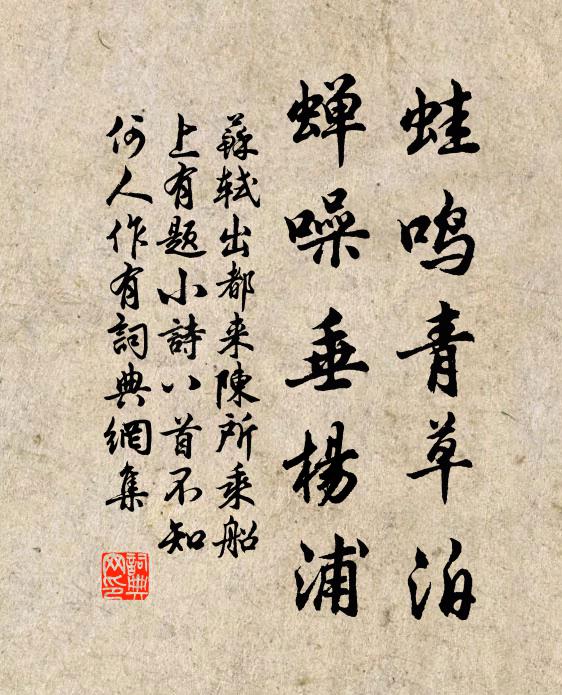 蛙鸣青草泊
蝉噪垂楊浦
蘇軾出都来陳所乘船
上有題小詩八首不知
何人作有詞典網集
詞典
网印